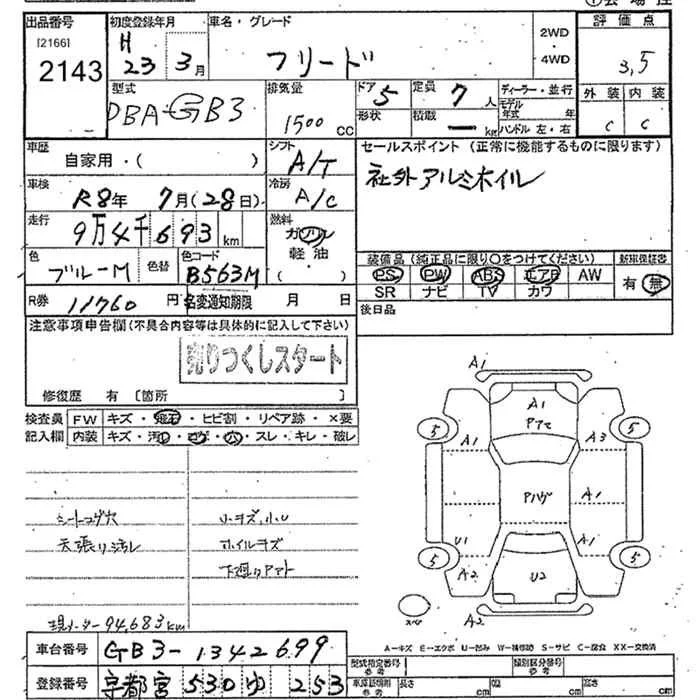 出品番号 初度登録年月 車名・グレード 評価点
[2166]
2143
H 23 3月
フリード
2WD
・4WD
3,5
型式 排気量 ドア 定員 ディーラー・並行 外装 内装
DBA-GB3
1500 cc
5
7人
形状 積載 kg
モデル年式 年
ハンドル 左・右
C C
車歴 シフト セールスポイント (正常に機能するものに限ります)
自家用・( )
A/T
社外アルミホイル
車検 R8年 7月(28日) 冷房 A/C
走行 9万4千693km 燃料 ガソリン
軽油
・( )
色 ブルーM 色替 色コード B563M
装備品(純正品に限り○をつけてください) 新車保証書
PS PW ABS エアB AW 有・無
SR ナビ TV カワ
R券 11760円 名変通知期限 月 日 後日品
注意事項申告欄(不具合内容等は具体的に記入して下さい)
売りつくしスタート
修復歴 有 [箇所 ]
検査員 FW キズ・飛石・ヒビ割・リペア跡・×要
記入欄 内装 キズ・汚れ・コゲ・穴・スレ・キレ・破レ
シートコゲ穴 小キズ、小U
天張り汚レ ホイルキズ
下廻りアマト
現メーター94,683km
A1
A1
アアマ
5 5
A1 A3
アハゲ
A1
U1 A1
5 5
A2 U2
スペア A2
A-キズ E-エクボ U-凹み W-補修跡 S-サビ C-腐食 XX-交換済
車台番号 GB3-1342699
登録番号 宇都宮 530 ゆ 253
型式指定番号 参考 類別区分番号 参考
車庫証明用 参考 長さ cm 幅 cm 高さ cm